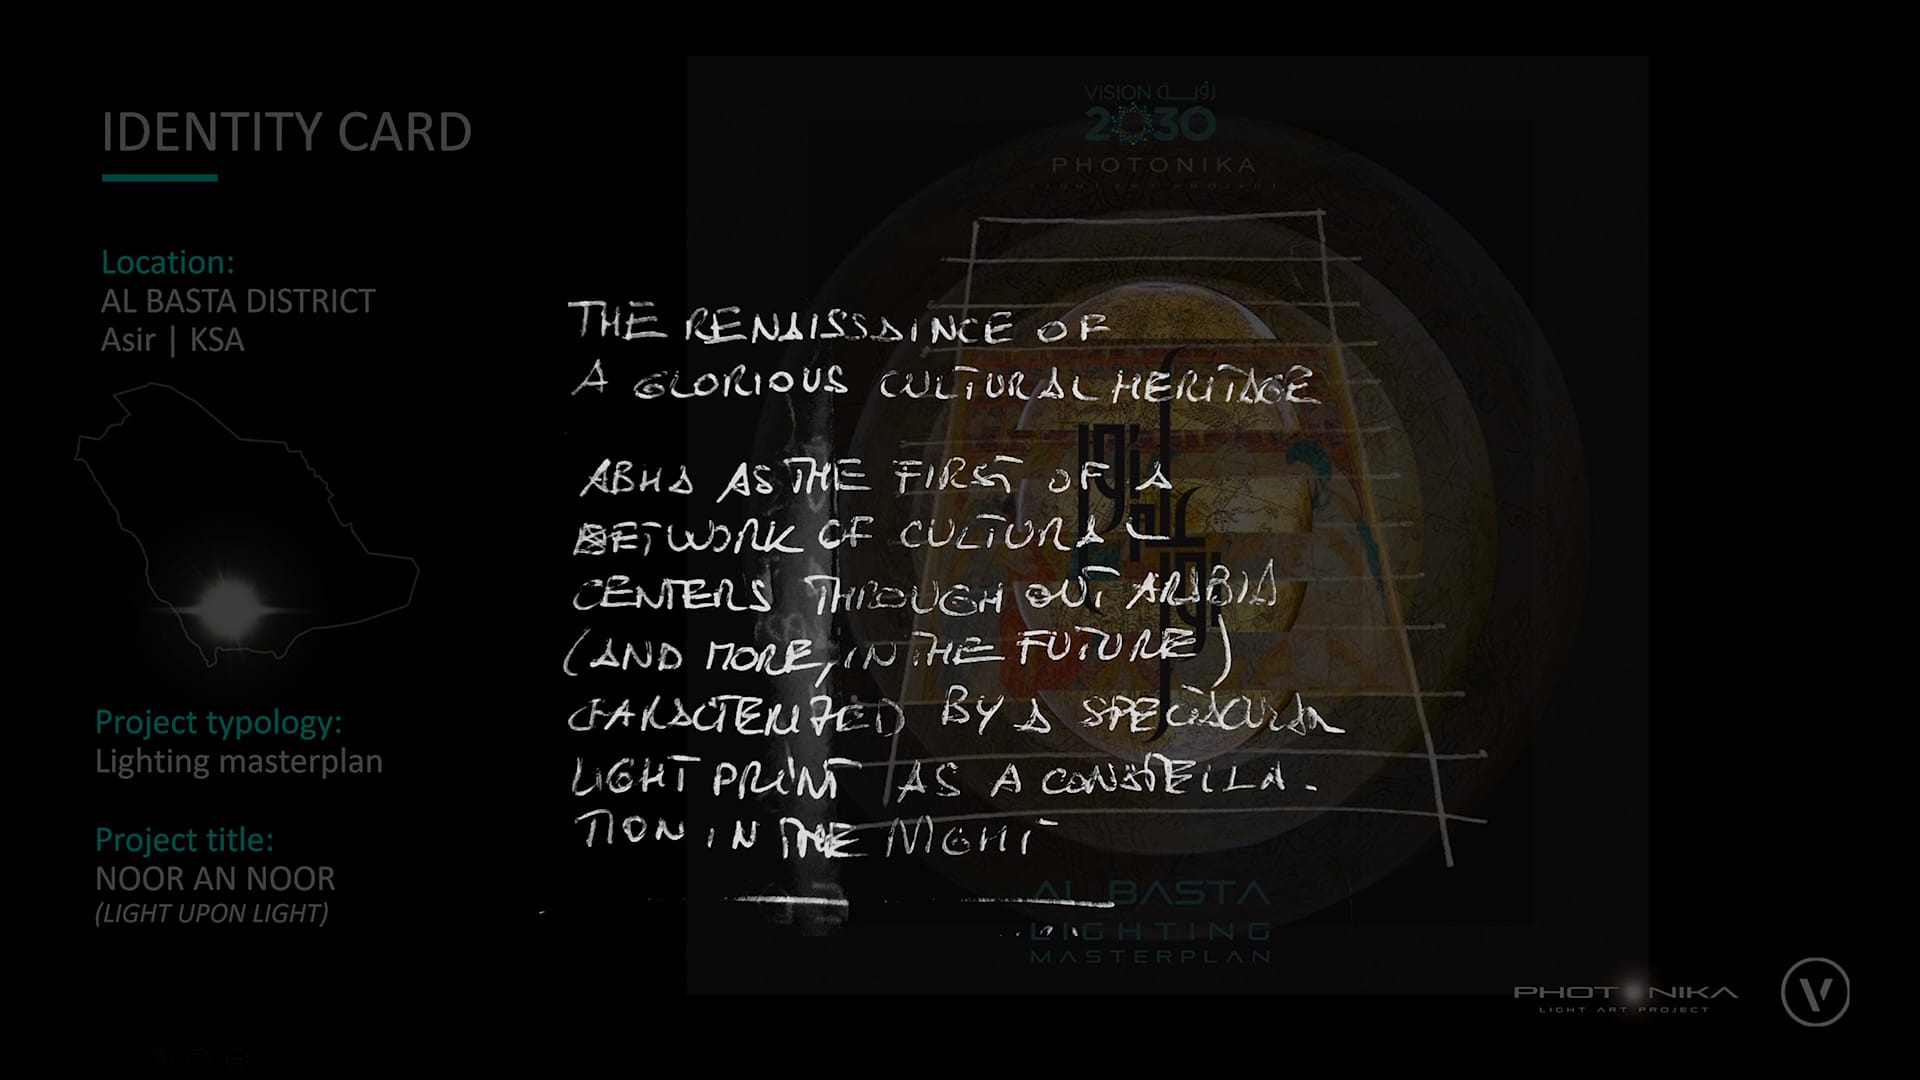 IDENTITY CARD
Location:
AL BASTA DISTRICT
Asir | KSA
Project typology:
Lighting masterplan
Project title:
NOOR AN NOOR
(LIGHT UPON LIGHT)
VISION رؤية
2030
PHOTONIKA
LIGHT ART PROJECT
THE RENAISSAINCE OF
A GLORIOUS CULTURAL HERITAGE
ABHA AS THE FIRST OF A
NETWORK OF CULTURAL
CENTERS THROUGH OUT ARABIA
(AND MORE, IN THE FUTURE)
CARACTERIZED BY A SPECTACULAR
LIGHT PRINT AS A CONSTELLA-
TION IN THE NIGHT
AL BASTA
LIGHTING
MASTERPLAN
PHOTONIKA
LIGHT ART PROJECT
V